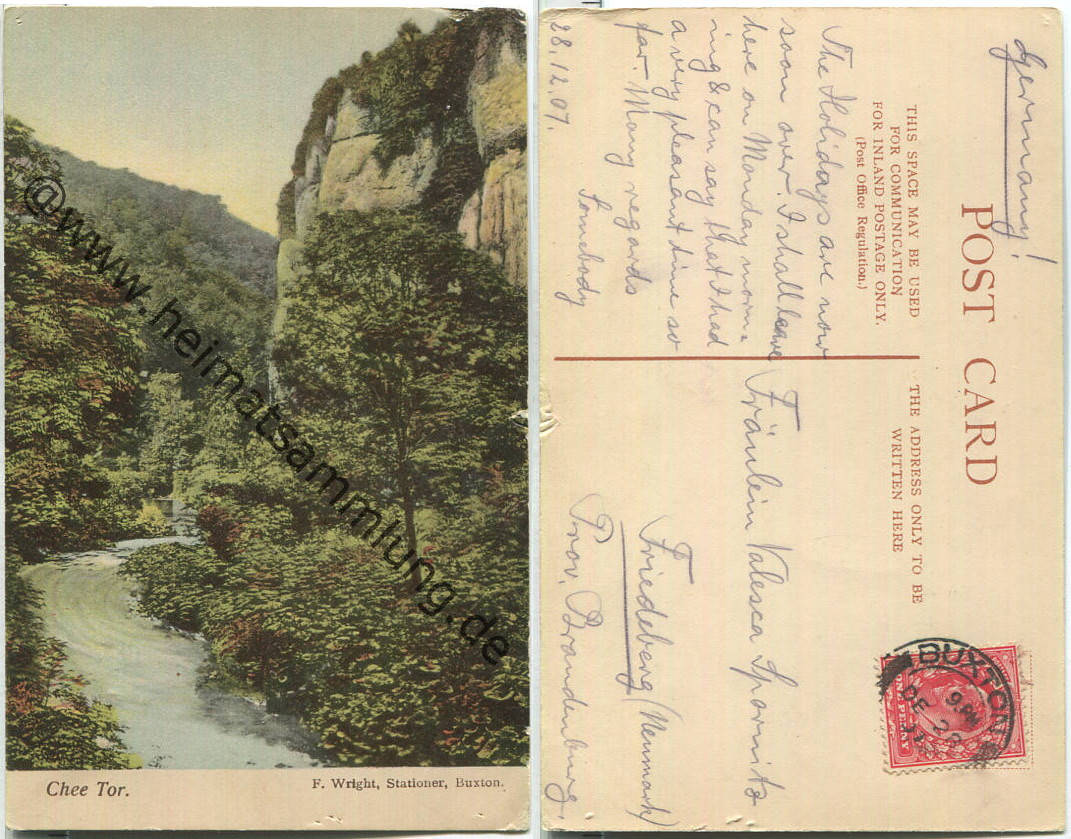 @www.heimatsammlung.de
Chee Tor.
F. Wright, Stationer, Buxton.
Germany!
POST CARD
THIS SPACE MAY BE USED
FOR COMMUNICATION
FOR INLAND POSTAGE ONLY.
(Post Office Regulation.)
THE ADDRESS ONLY TO BE
WRITTEN HERE
The Holidays are now
soon over. I shall leave
here on Monday morn-
ing & can say that I had
a very pleasant time so
far. Many regards
Somebody
28.12.07.
Fräulein Valesca Spornitz
Friedeberg (Neumark)
Prov. Brandenburg.
BUXTON
ONE PENNY